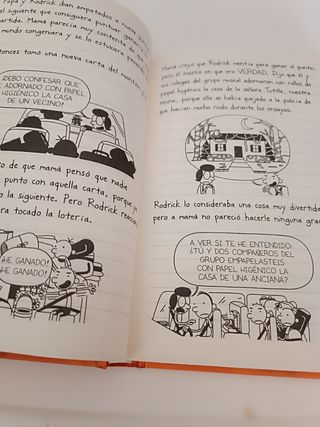 papá y Rodrick iban empatados a nueve
el siguiente que consiguiera puntuar
partida. Mamá parecía muy contenta de
mundo congeniara y se lo estuviera
tonces tomó una nueva carta del montón y
DEBO CONFESAR QUE
HE ADORNADO CON PAPEL
HIGIÉNICO LA CASA
DE UN VECINO!
ro de que mamá pensó que nadie
punto con aquella carta, porque
o la siguiente. Pero Rodrick
era tocado la lotería.
¡HE GANADO!
¡HE GANADO!
Mamá creyó que Rodrick mentía para ganar el punto,
pero él insistió en que era VERDAD. Dijo que él y
sus colegas del grupo musical adornaron con rollos de
papel higiénico la casa de la señora Tuttle, nuestra
vecina, porque ella se había quejado a la policía de
que hacían mucho ruido durante los ensayos.
Rodrick lo consideraba una cosa muy divertida
pero a mamá no pareció hacerle ninguna
A VER SI TE HE ENTENDIDO:
¿TÚ Y DOS COMPAÑEROS DEL
GRUPO EMPAPELASTEIS
CON PAPEL HIGIÉNICO LA
CASA DE UNA ANCIANA?